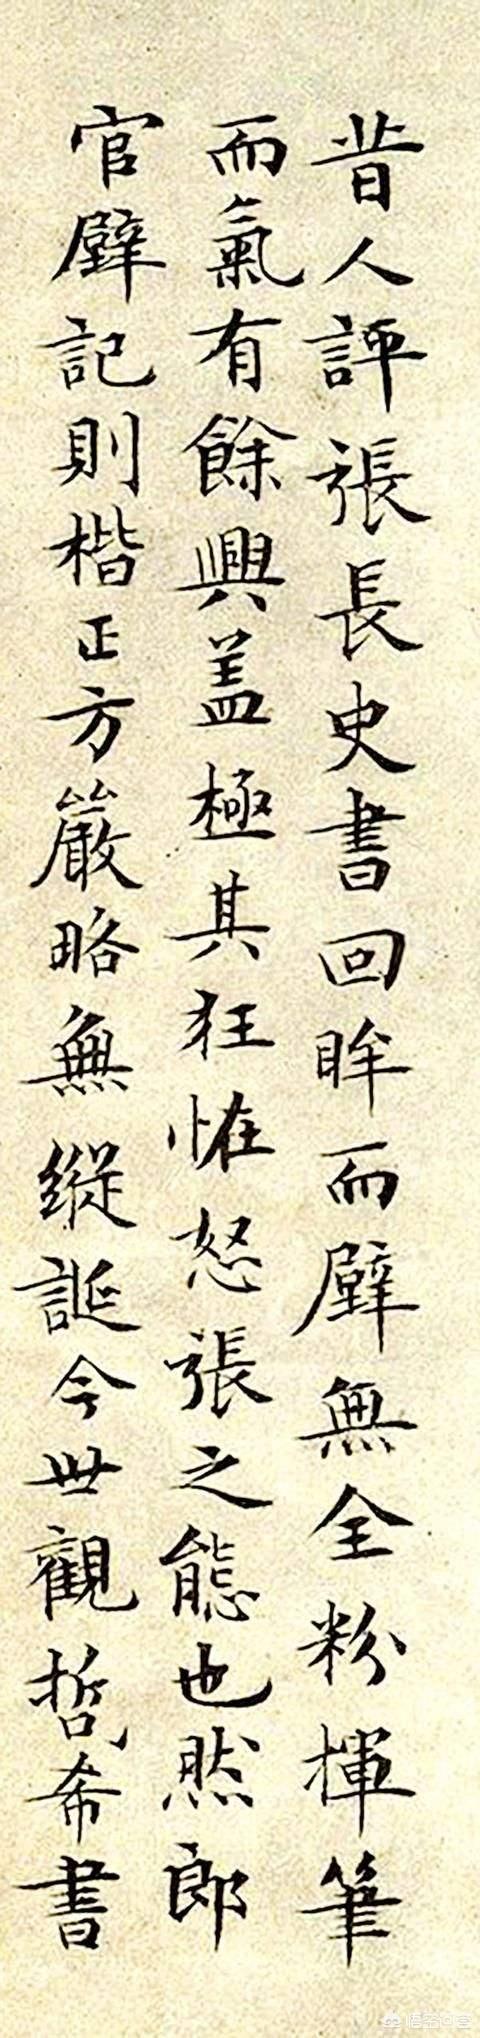 昔人評張長史書回眸而壁無全粉揮筆
而氣有餘興盖極其狂怪怒張之態也然郎
官壁記則楷正方嚴略無縱誕今世觀哲希書
悟空问答